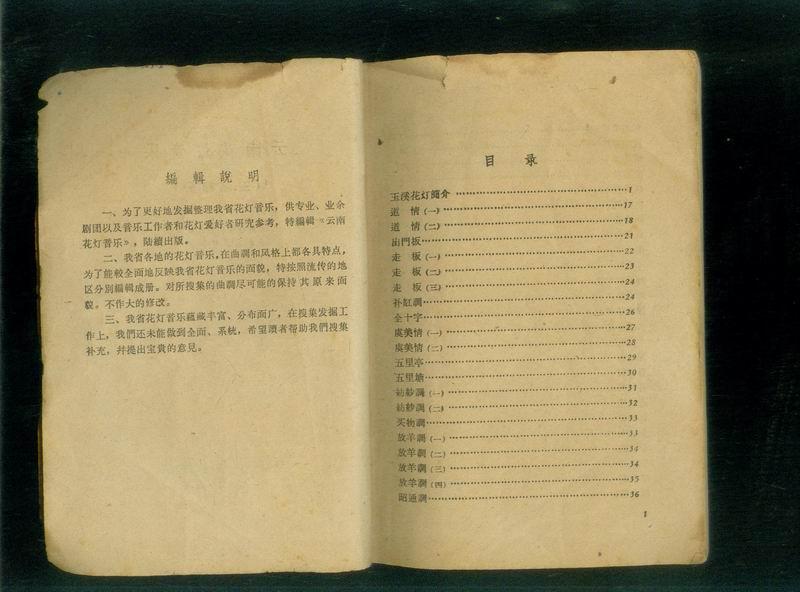 編輯說明
一、为了更好地发掘整理我省花灯音乐，供专业、业余
剧团以及音乐工作者和花灯爱好者研究参考，特編輯《云南
花灯音乐》，陆續出版。
二、我省各地的花灯音乐，在曲調和风格上都各具特点，
为了能較全面地反映我省花灯音乐的面貌，特按照流传的地
区分别編輯成册。对所搜集的曲調尽可能的保持其原来面
貌。不作大的修改。
三、我省花灯音乐蘊藏丰富、分布面广，在搜集发掘工
作上，我們还未能做到全面、系統，希望讀者帮助我們搜集
补充，幷提出宝貴的意見。
目录
玉溪花灯簡介 1
道情(一) 17
道情(二) 18
出門板 21
走板(一) 22
走板(二) 23
走板(三) 24
补缸調 24
全十字 26
虞美情(一) 27
虞美情(二) 28
五里亭 29
五里塘 30
紡紗調(一) 31
紡紗調(二) 32
买物調 33
放羊調(一) 33
放羊調(二) 34
放羊調(三) 34
放羊調(四) 35
昭通調 36
1